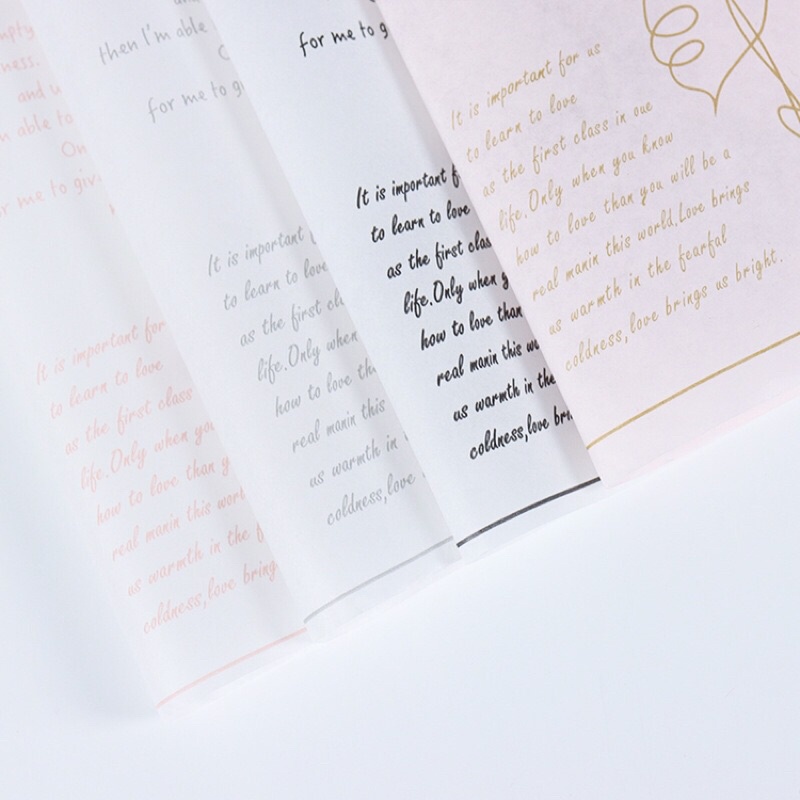 mpty
ness.
and u
m able to
On
or me to giv
It is important for
to learn to love
as the first class
life.Only when you
how to love than y
real manin this worl
us warmth in the f
coldness,love bring
then I'm able
for me to g
It is important
to learn to love
as the first cl
life.Only when
how to love th
real manin this
us warmth in
coldness,love
for me to g
It is important f
to learn to love
as the first clas
life.Only when y
how to love than
real manin this wo
us warmth in the
coldness,love bri
It is important for us
to learn to love
as the first class in oue
life.Only when you know
how to love than you will be a
real manin this world.Love brings
us warmth in the fearful
coldness,love brings us bright.